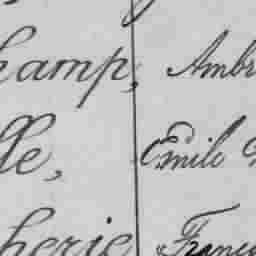 hamp, Ambr
lle, Emile
herie Franç